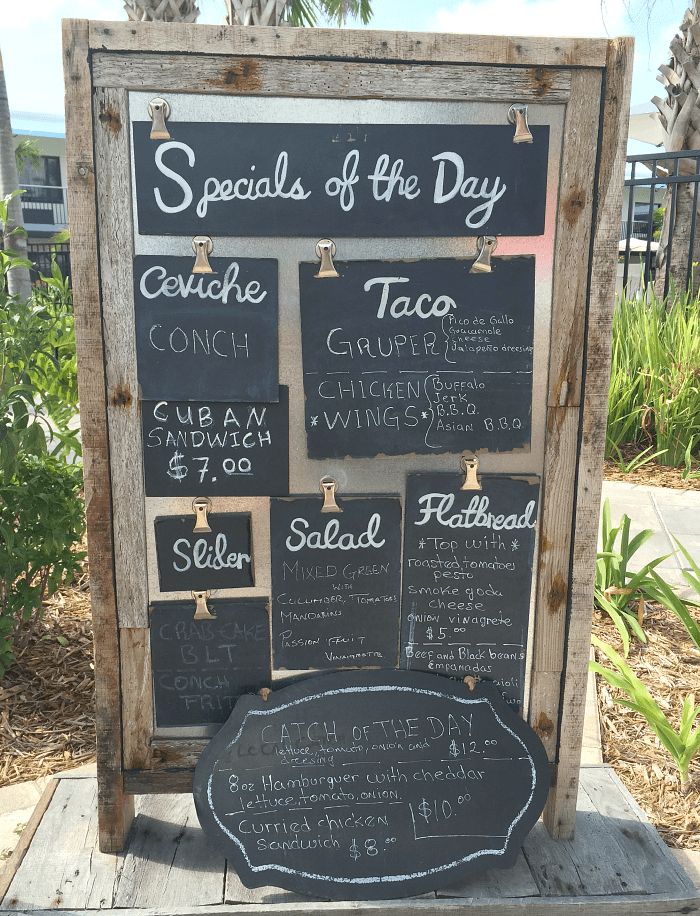 Specials of the Day
Ceviche
CONCH
CUBAN
SANDWICH
$7.00
Taco
GRUPER
Pico de Gallo
Guacamole
cheese
Jalapeño dressing
CHICKEN
*WINGS*
Buffalo
Jerk
B.B.Q.
Asian B.B.Q.
Slider
CRAB CAKE
BLT
CONCH
FRIT
Salad
MIXED GREEN
WITH
CUCUMBER, TOMATOES
MANDARINS
PASSION FRUIT
VINAIGRETTE
Flatbread
*Top with*
roasted, tomatoes
pesto
smoke goda
cheese
onion vinagrete
$5.00
Beef and Black beans
empanadas
CATCH OF THE DAY
lettuce, tomato, onion and
dressing $12.00
8oz Hamburguer with cheddar
lettuce, tomato, onion.
$10.00
Curried chicken
Sandwich $8.00